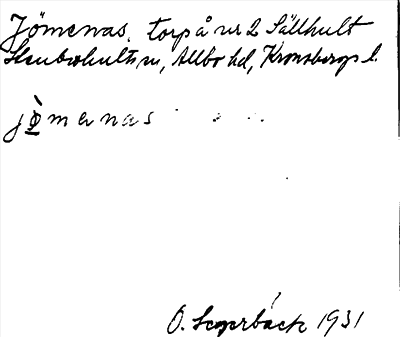 Jömenas, torp å nr 2 Sällhult
Stenbrohults sn, Allbo hd, Kronobergs l.
jömenas
O. Segerbäck 1931